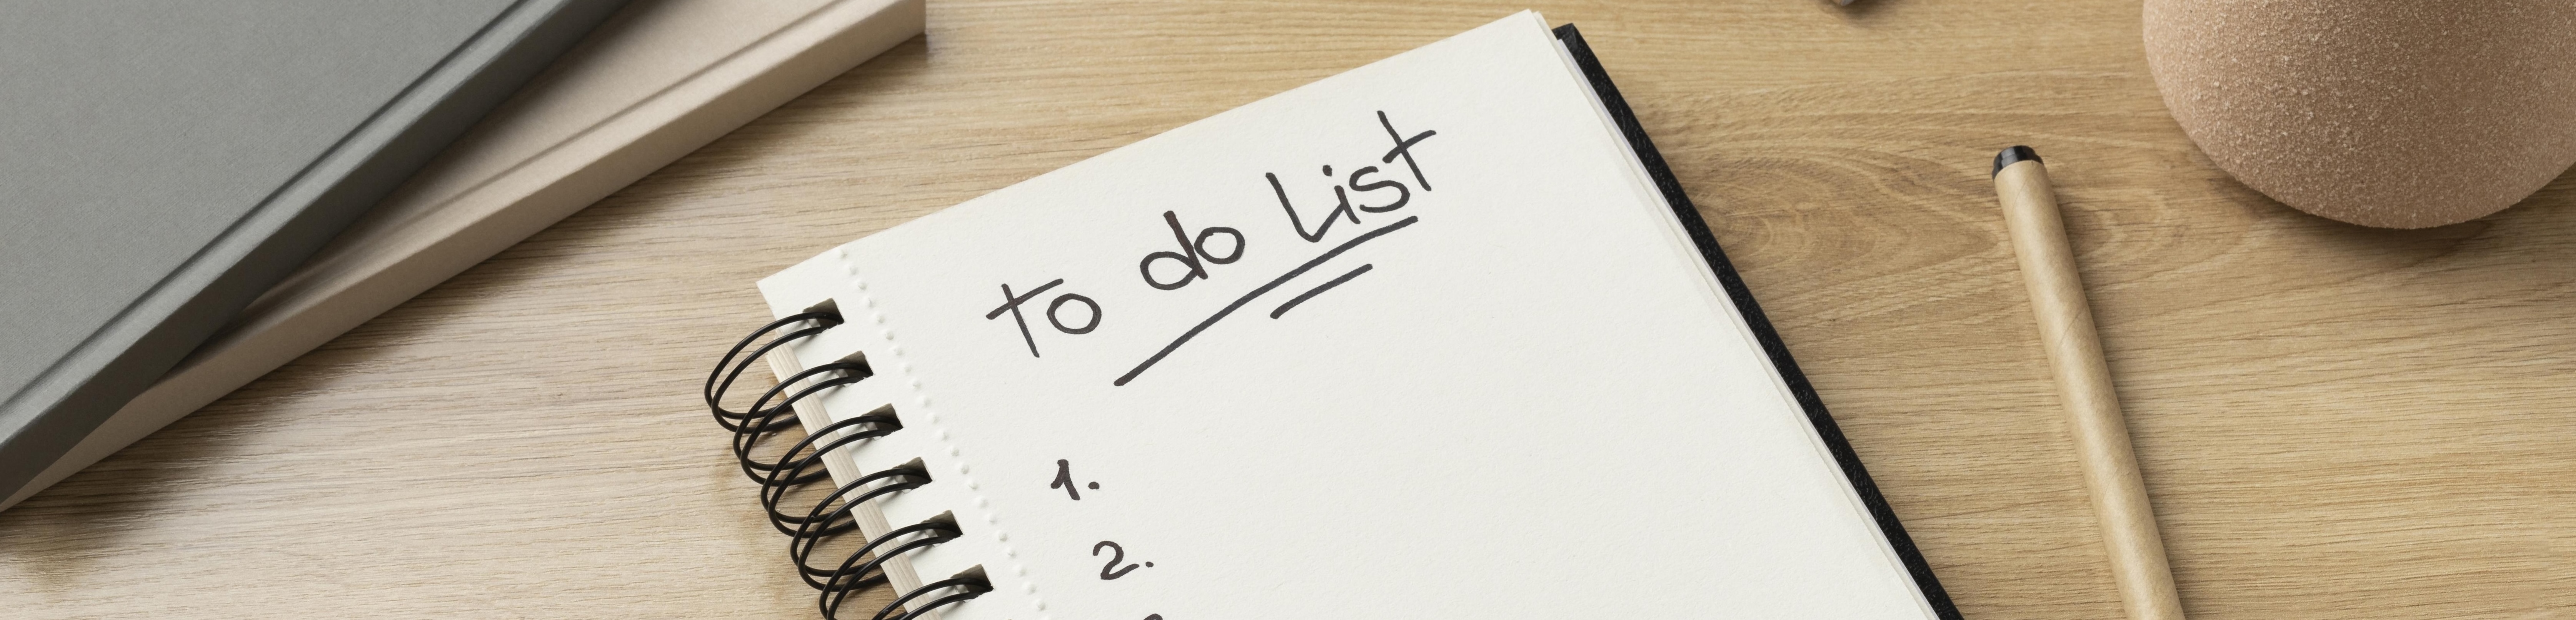 To do List
1.
2.